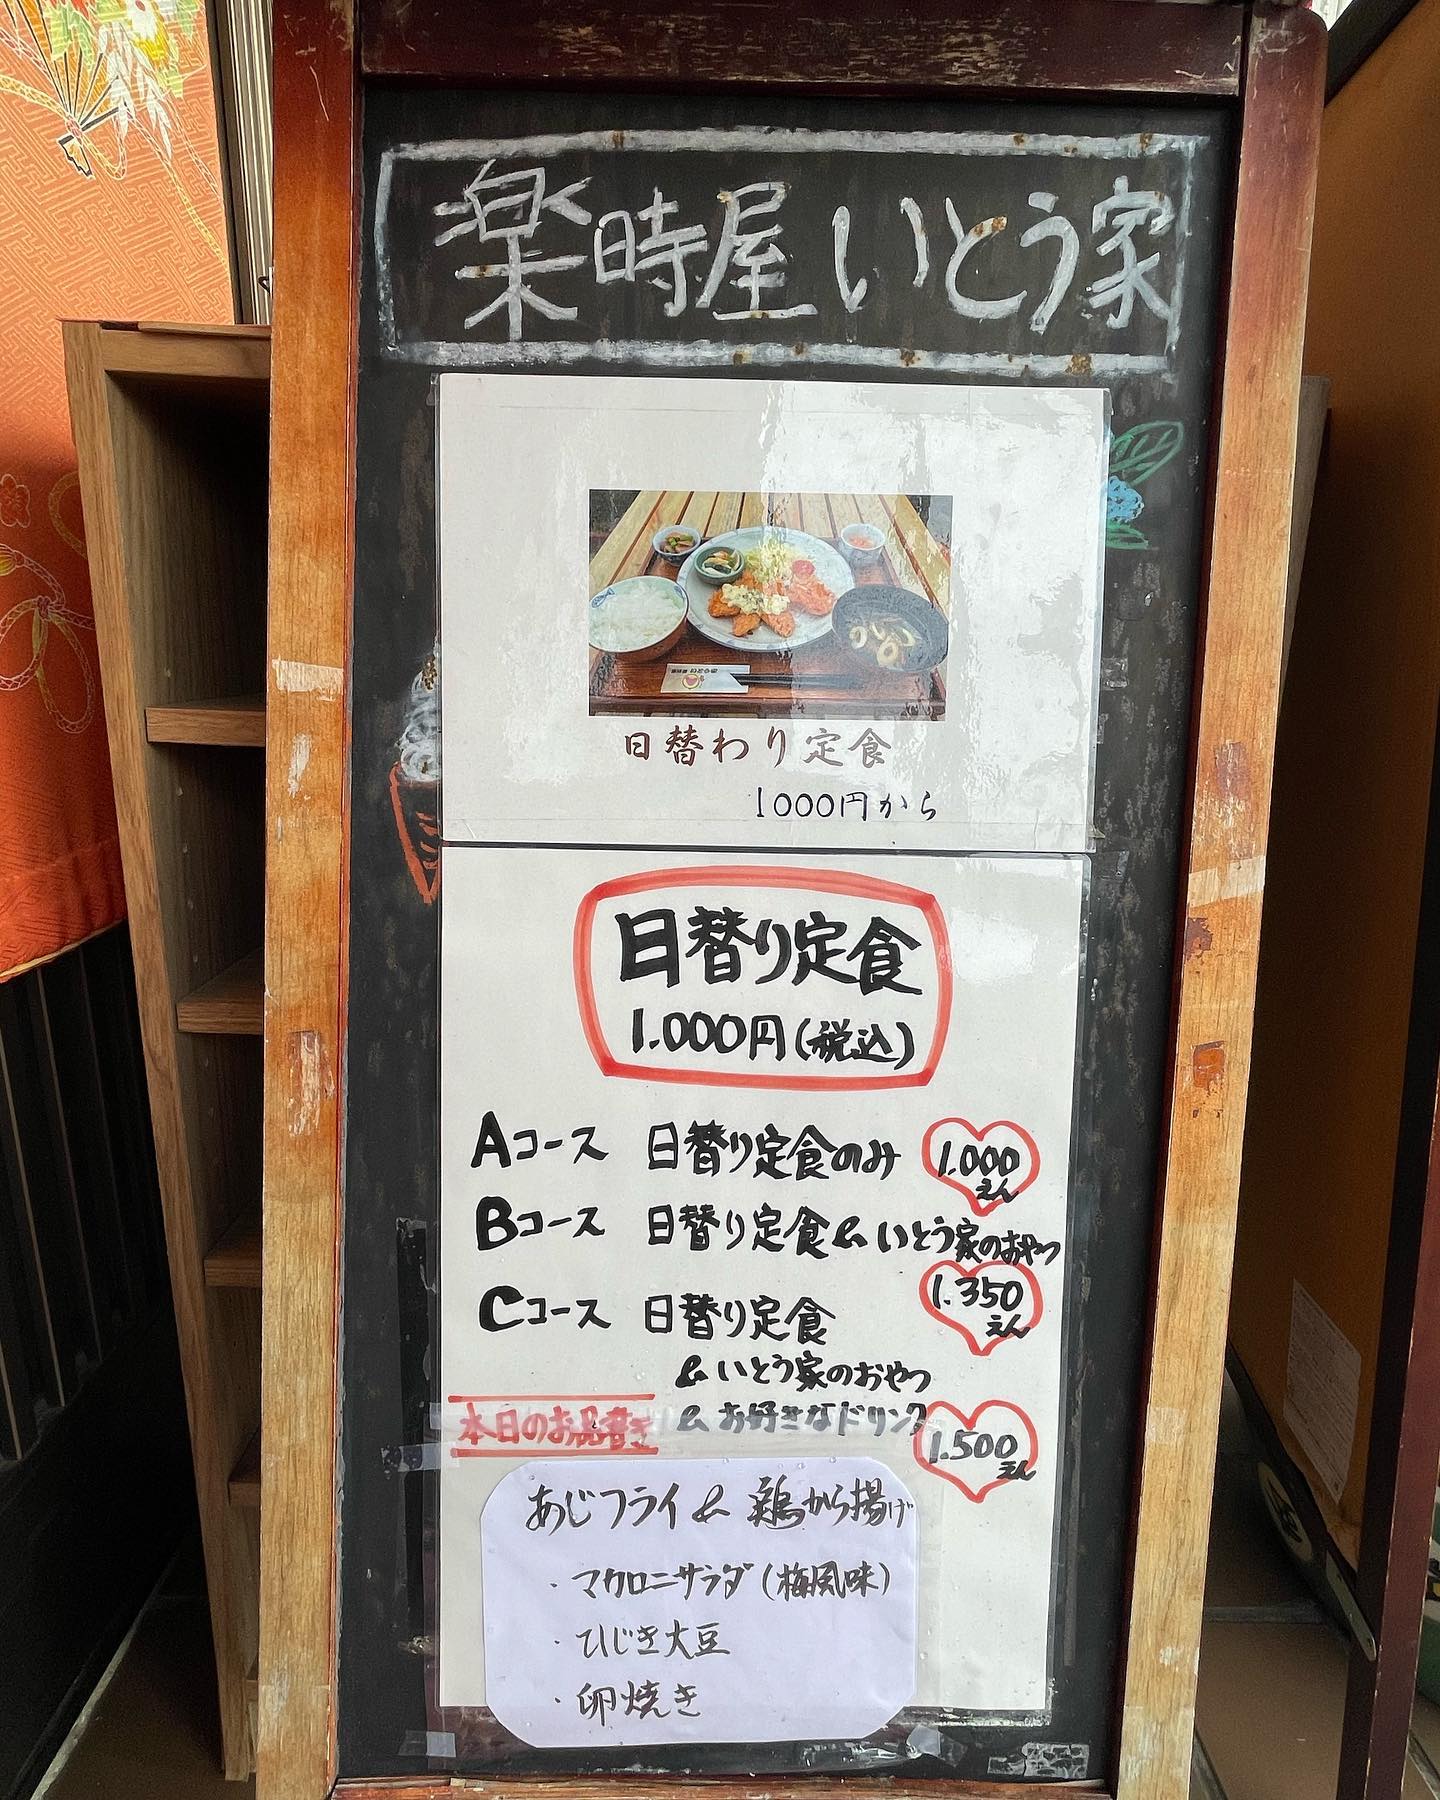 楽時屋 いとう家
日替わり定食
1000円から
日替り定食
1.000円(税込)
Aコース 日替り定食のみ 1.000えん
Bコース 日替り定食&いとう家のおやつ
1.350えん
Cコース 日替り定食
&いとう家のおやつ
&お好きなドリンク
1.500えん
本日のお品書き
あじフライ & 鶏から揚げ
・マカロニサラダ(梅風味)
・ひじき大豆
・卵焼き